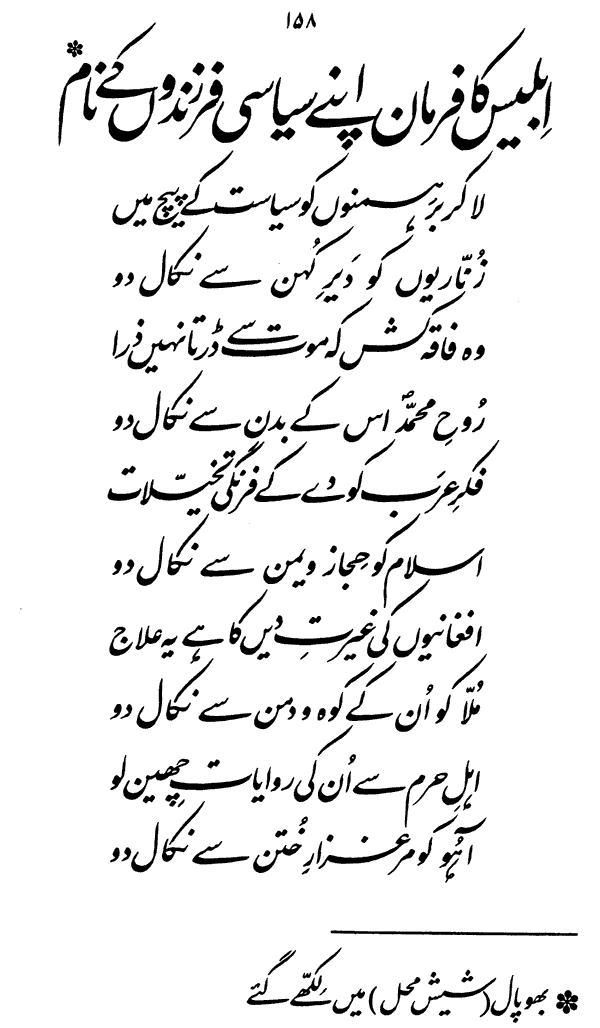 ۱۵۸
اِبلیس کا فرمان اپنے سیاسی فرزندوں کے نام *
لا کر بَرہمنوں کو سیاست کے پیچ میں
زُنّاریوں کو دَیرِ کُہن سے نکال دو
وہ فاقہ کش کہ موت سے ڈرتا نہیں ذرا
رُوحِ محمدؐ اس کے بدن سے نکال دو
فکرِ عرَب کو دے کے فرنگی تخیّلات
اسلام کو حِجاز و یمن سے نکال دو
افغانیوں کی غیرتِ دیں کا ہے یہ علاج
مُلّا کو اُن کے کوہ و دمن سے نکال دو
اہلِ حرم سے اُن کی روایات چھِین لو
آہُو کو مرغزارِ خُتن سے نکال دو
* بھوپال (شیش محل) میں لِکھّے گئے